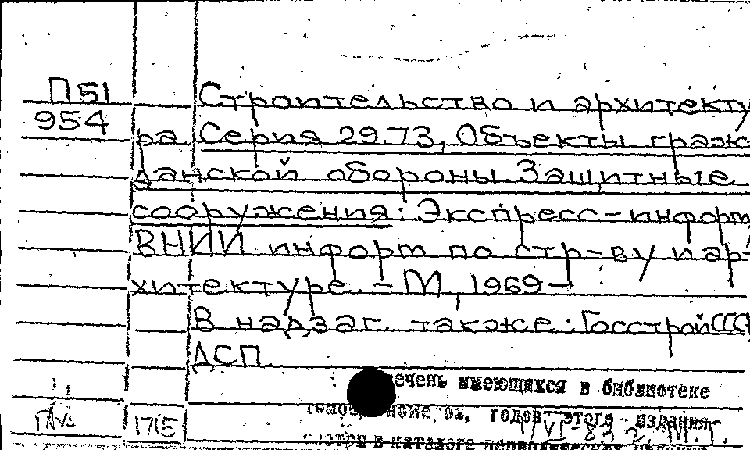 П51
954
Строительство и архитекту
ра Серия 29.73, Объекты граж
данской обороны. Защитные
сооружения: Экспресс-информ
ВНИИ информ по стр-ву и ар-
хитектуре. - М, 1969 -
В надзаг. также: Госстрой СССР
ДСП
ечень имеющихся в библиотеке
годов этого издания
в каталоге
1715